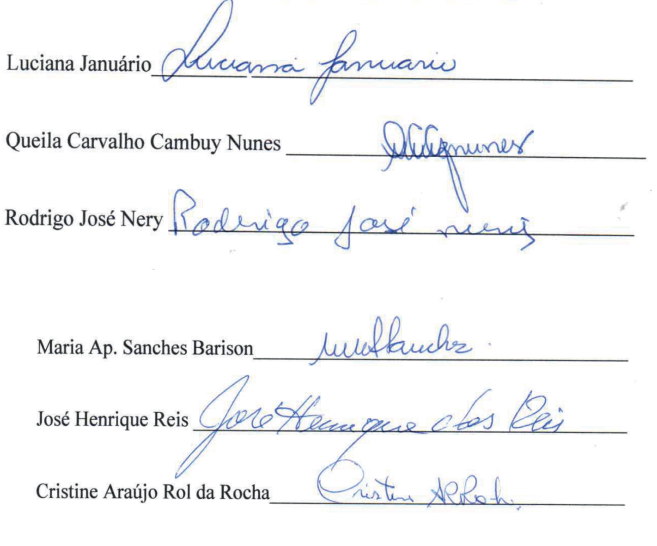 Luciana Januário Luciana Januario
Queila Carvalho Cambuy Nunes
Rodrigo José Nery Rodrigo José
Maria Ap. Sanches Barison
José Henrique Reis José Henrique dos Reis
Cristine Araújo Rol da Rocha Cristine